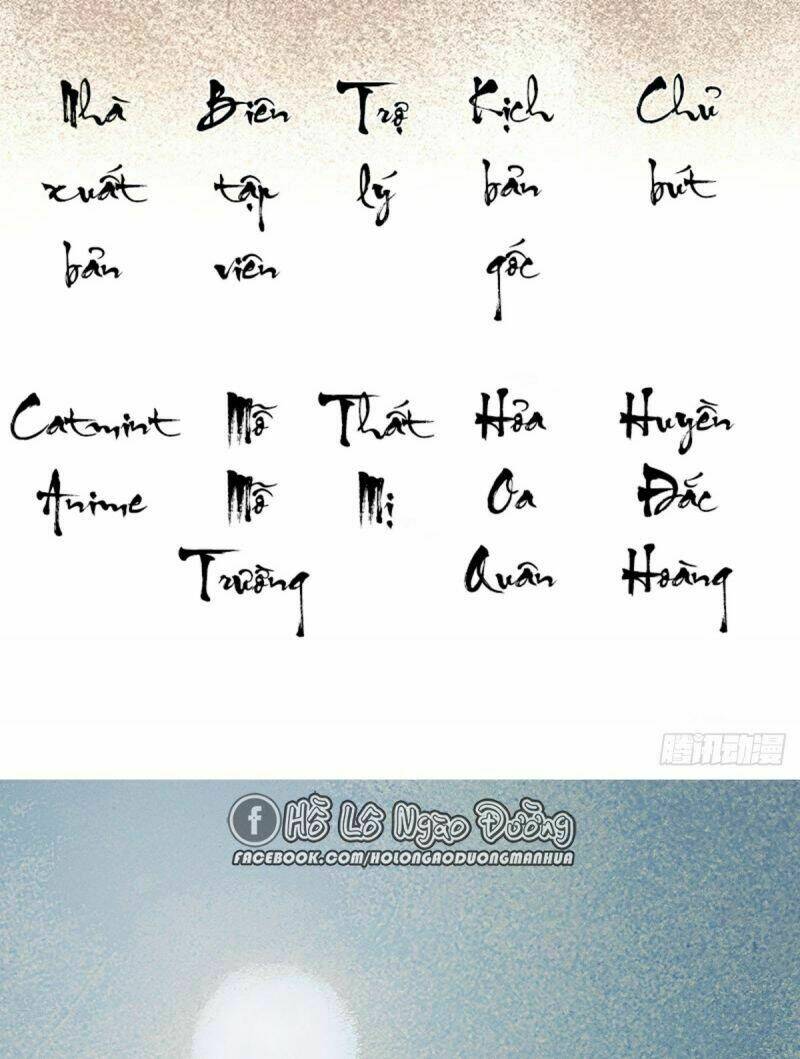 Nhà Biên Trợ Kịch Chủ
xuất tập lý bản bút
bản viên gốc
Catmint Mỗ Thất Hỏa Huyền
Anime Mỗ Mị Oa Đắc
Trường Quân Hoàng
腾讯动漫
Hồ Lô Ngào Đường
FACEBOOK.COM/HOLONGAODUONGMANHUA